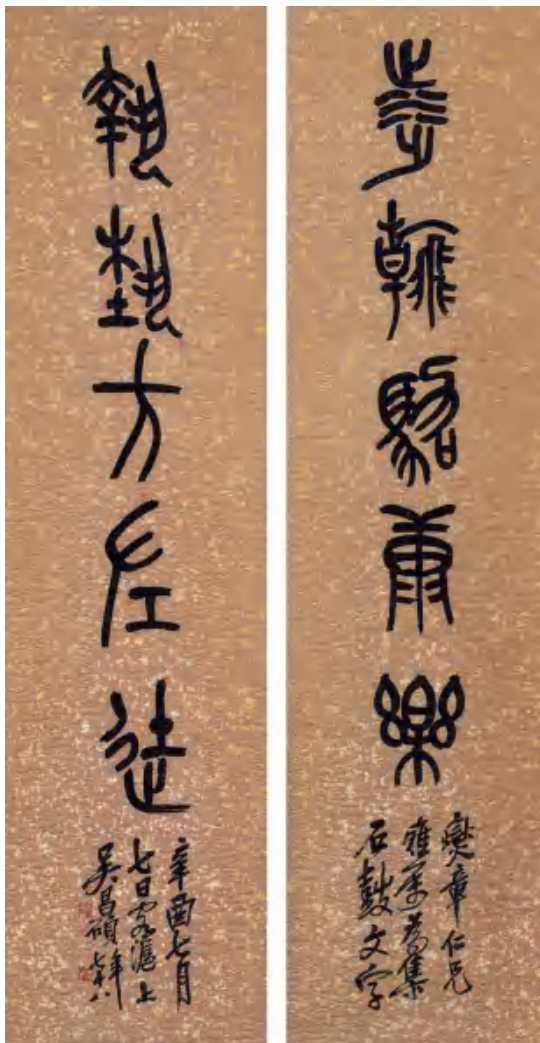 翰駱康樂
燮章仁兄
雅屬為集
石鼓文字
執埶方左徒
辛酉七月
七日客滬上
吳昌碩年七十八